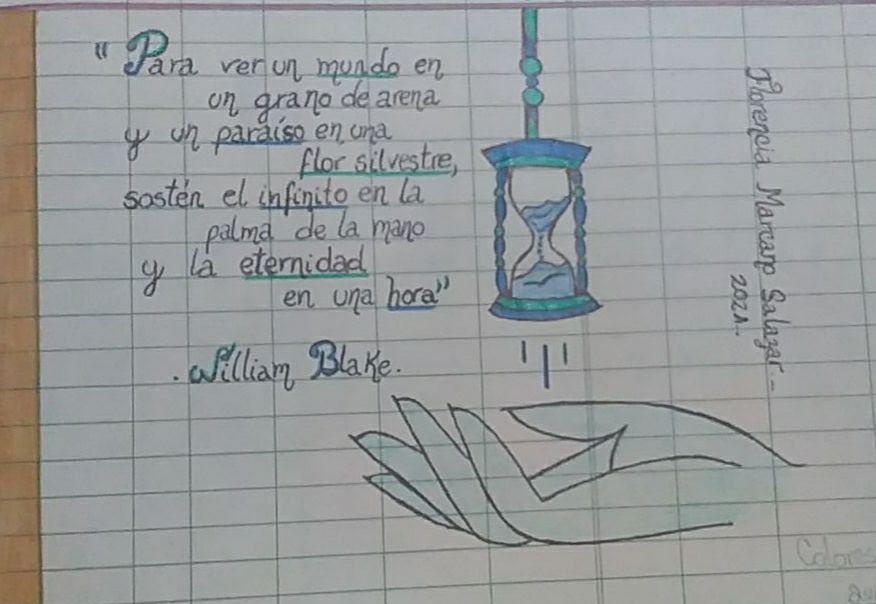 "Para ver un mundo en
un grano de arena
y un paraíso en una
flor silvestre,
sostén el infinito en la
palma de la mano
y la eternidad
en una hora"
. William Blake.
Florencia Marcano Salazar.-
2021..
Colores